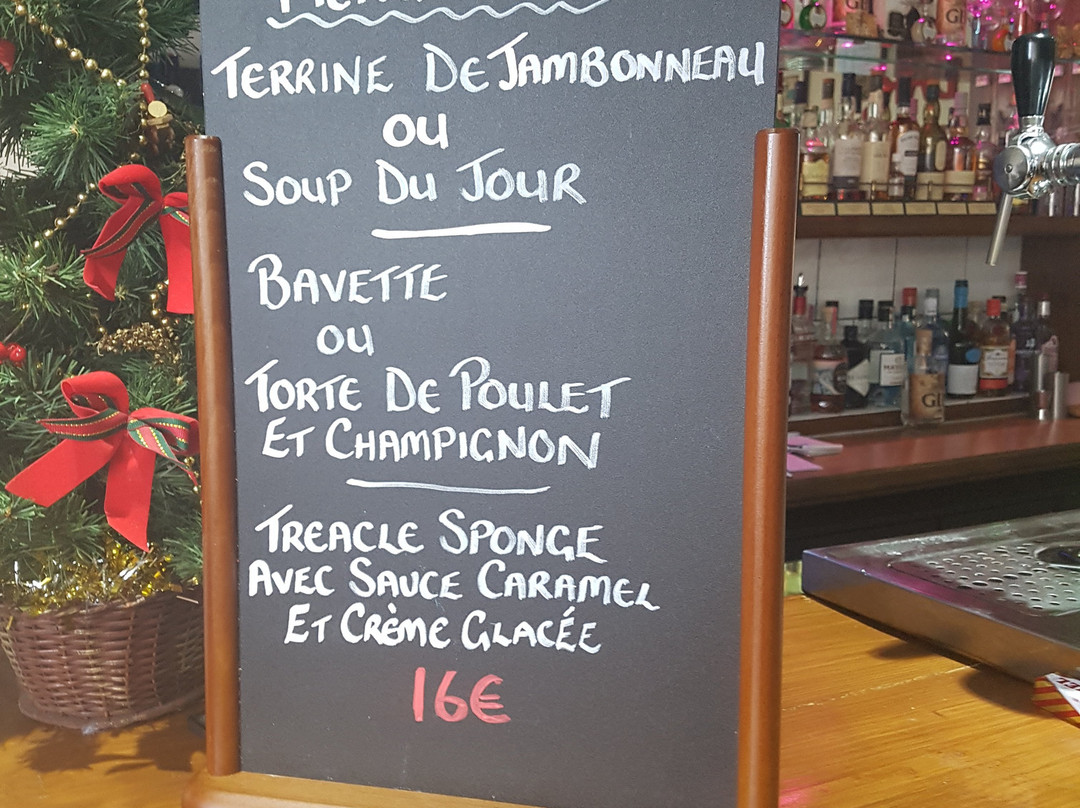 TERRINE DE JAMBONNEAU
OU
SOUP DU JOUR
BAVETTE
OU
TORTE DE POULET
ET CHAMPIGNON
TREACLE SPONGE
AVEC SAUCE CARAMEL
ET CRÈME GLACÉE
16€